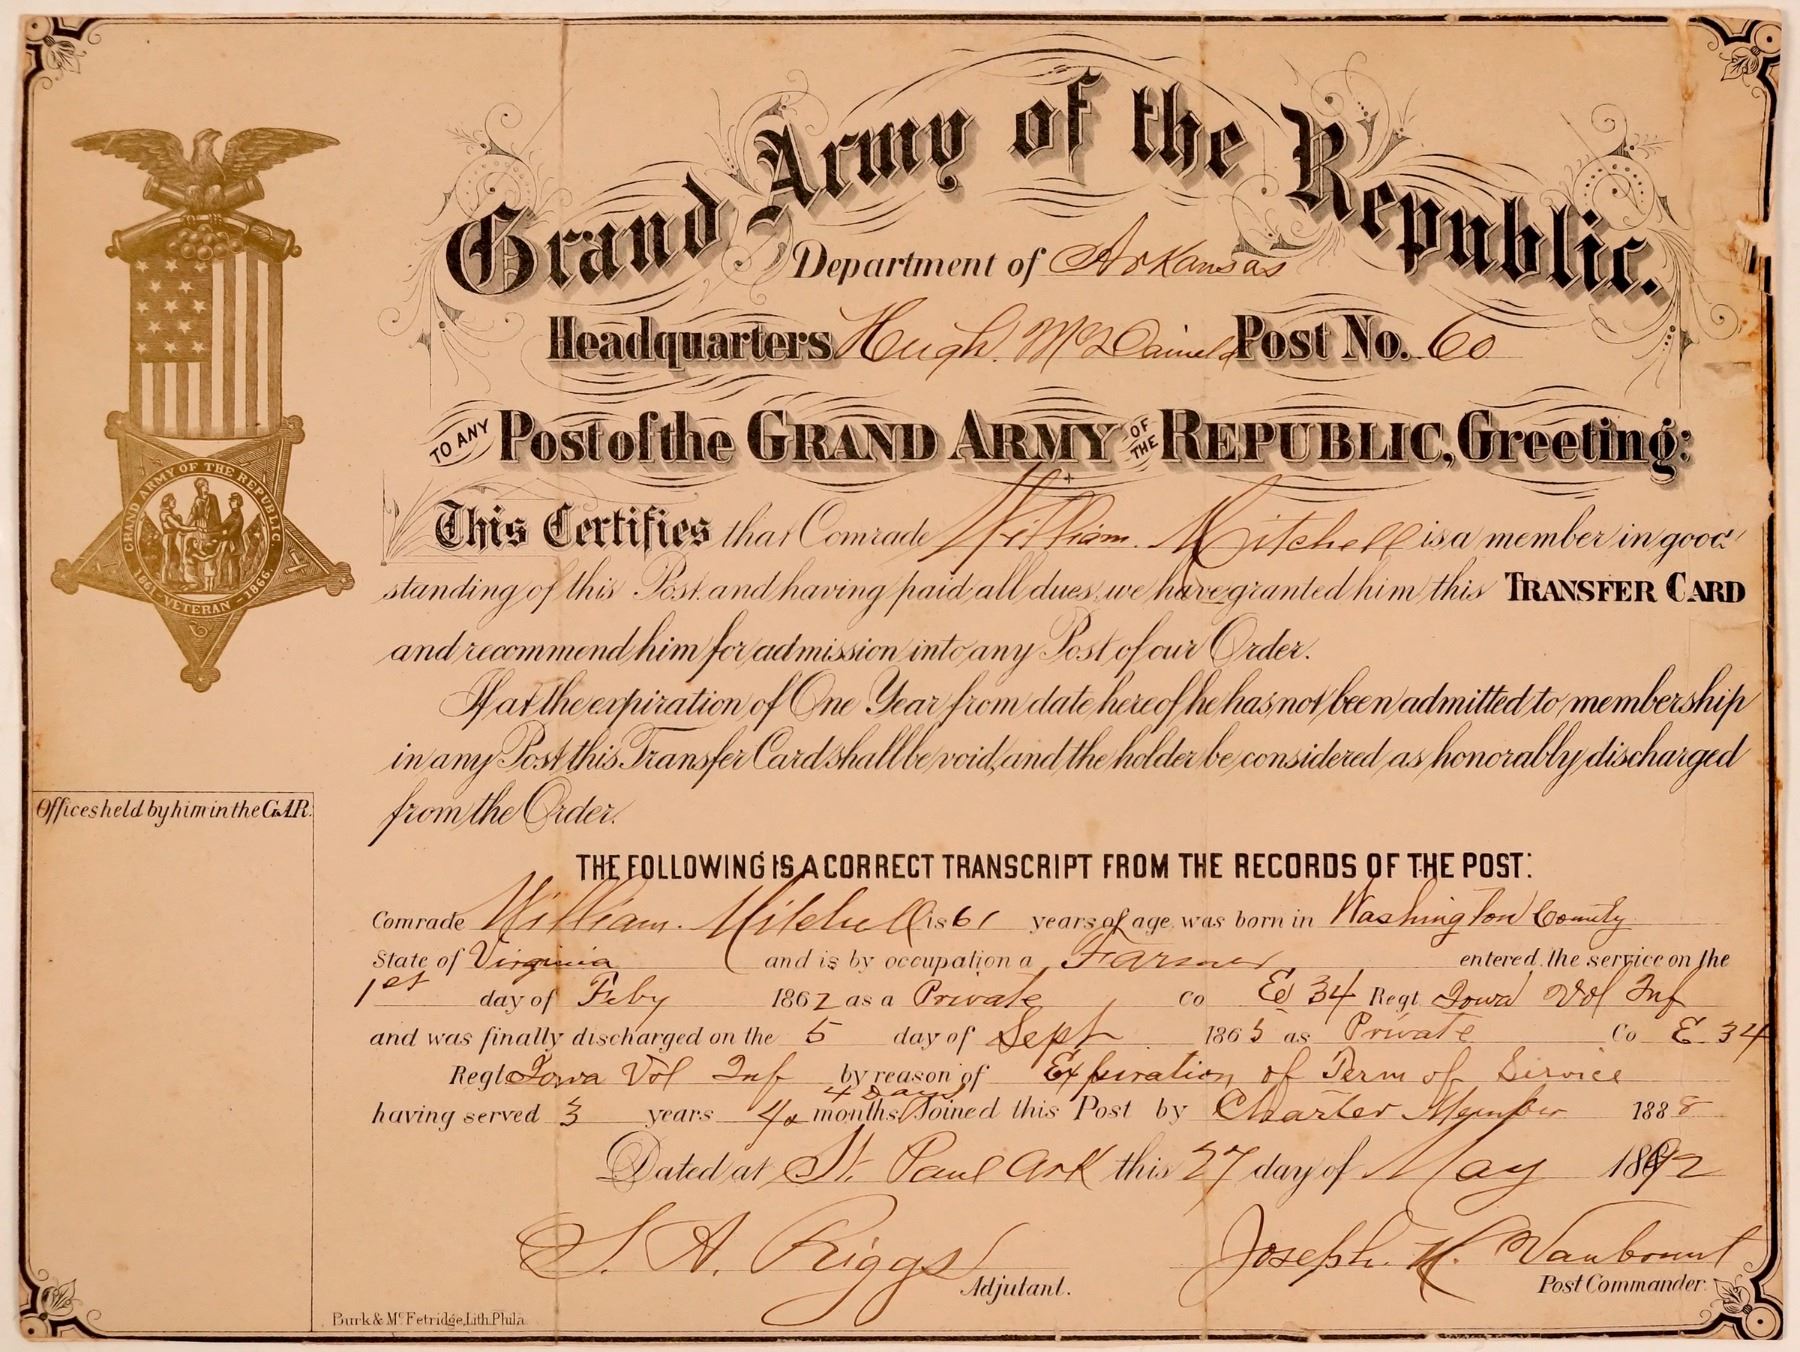 Grand Army of the Republic.
Department of Arkansas
Headquarters Hugh. McDaniels Post No. 60
TO ANY Post of the GRAND ARMY OF THE REPUBLIC, Greeting:
This Certifies that Comrade William. Mitchell is a member in good
standing of this Post, and having paid all dues, we have granted him this TRANSFER CARD
and recommend him for admission into any Post of our Order.
If at the expiration of One Year from date hereof he has not been admitted to membership
in any Post this Transfer Card shall be void, and the holder be considered as honorably discharged
from the Order.
GRAND ARMY OF THE REPUBLIC
1861 - VETERAN - 1866
Offices held by him in the G.A.R.
THE FOLLOWING IS A CORRECT TRANSCRIPT FROM THE RECORDS OF THE POST:
Comrade William. Mitchell is 61 years of age, was born in Washington County
State of Virginia and is by occupation a Farmer entered the service on the
1st day of Feby 1862 as a Private Co E 34 Regt Iowa Vol Inf
and was finally discharged on the 5 day of Sept 1865 as Private Co E 34
Regt Iowa Vol Inf by reason of Expiration of Term of Service
4 Days
having served 3 years 4 months. Joined this Post by Charter Member 1888
Dated at St. Paul Ark this 27 day of May 1892
S. A. Riggs Joseph. H. Vanbount
Adjutant. Post Commander.
Burk & McFetridge, Lith. Phila.